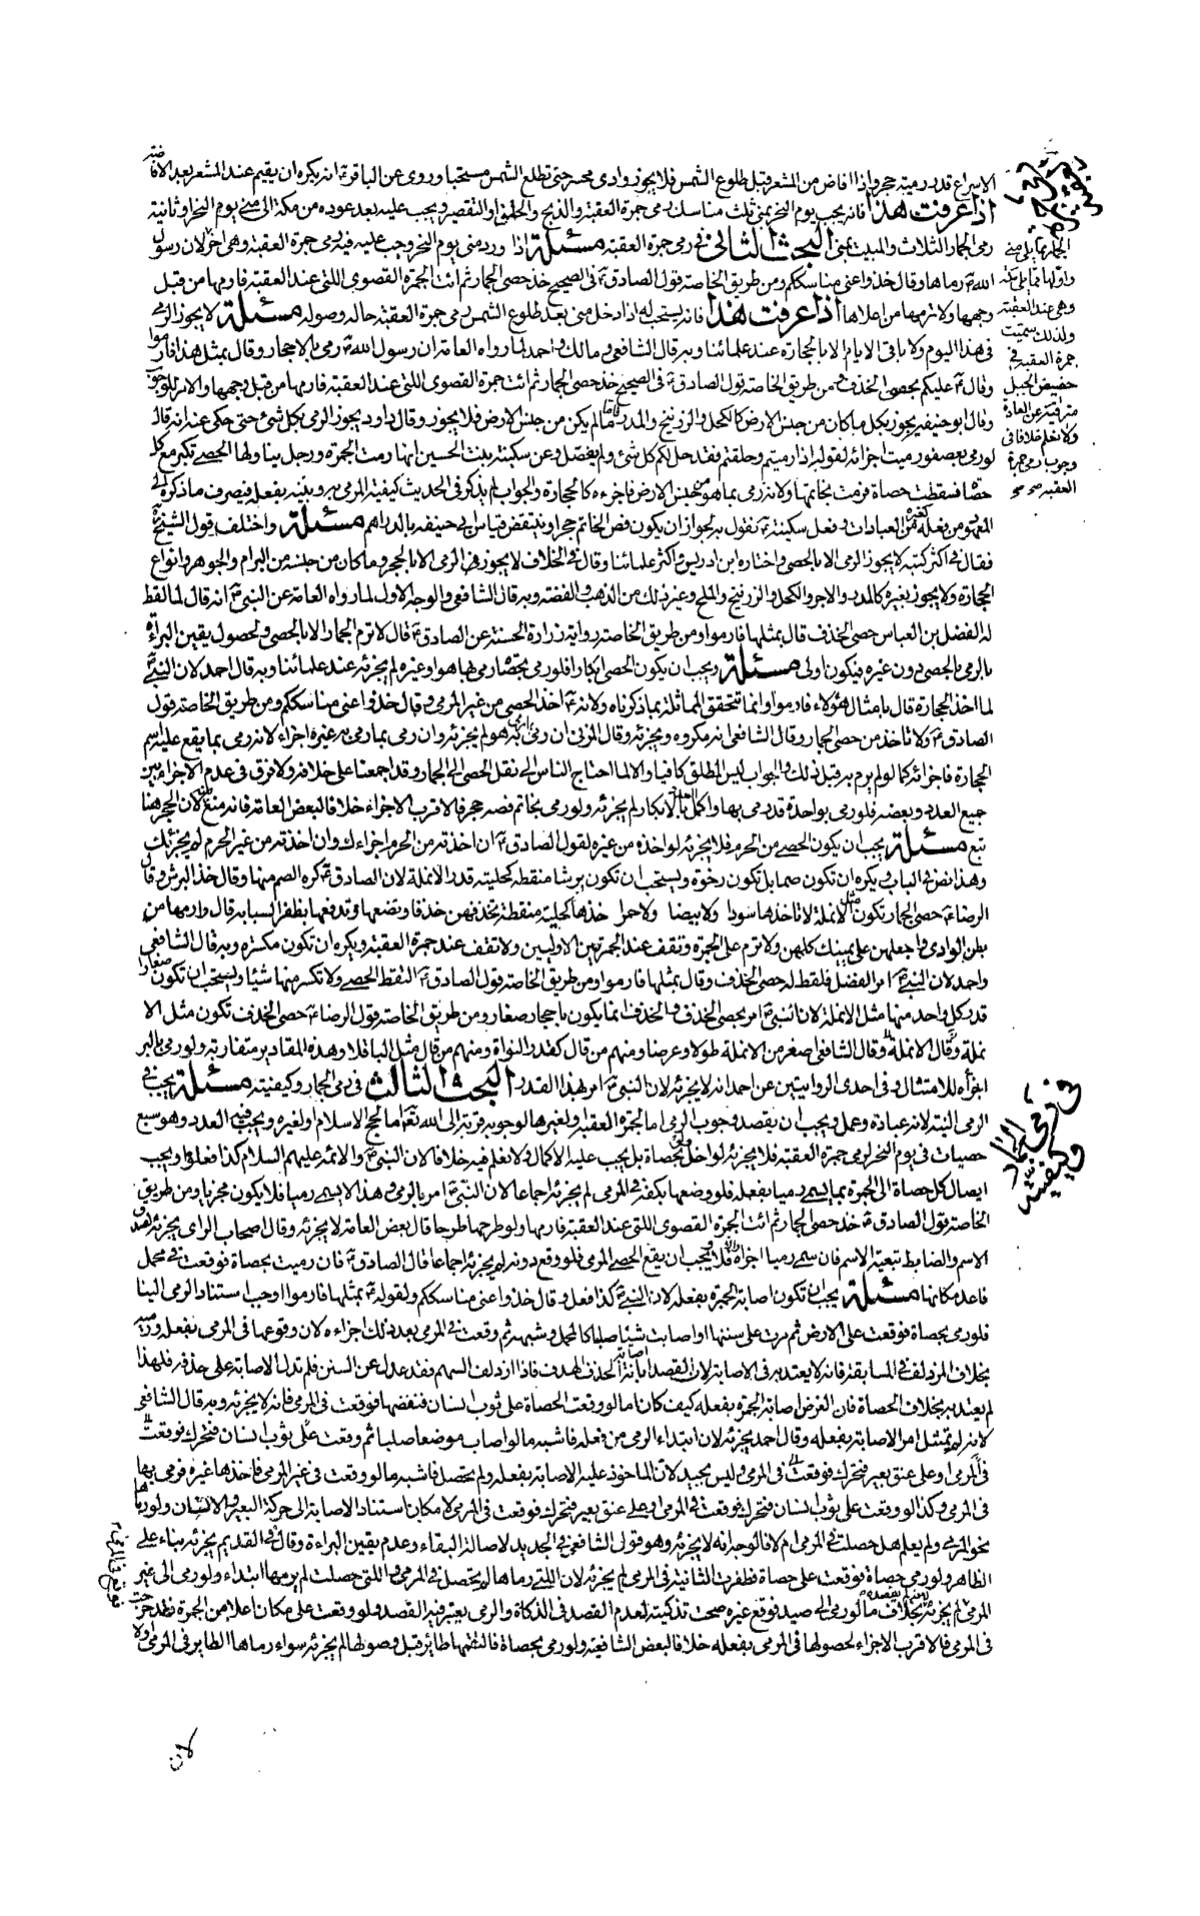 الاسراع قدر رمية حجر واذا افاض من المشعر قبل طلوع الشمس فلا يجوز وادى محسر حتى تطلع الشمس مستحبا وروى عن الباقر ع انه يكره ان يقيم عند المشعر بعد الافاضة
اذا عرفت هذا فانه يجب يوم النحر بمنى ثلث مناسك رمى جمرة العقبة والذبح والحلق او التقصير ويجب عليه بعد عوده من مكة الى منى يوم النحر او ثانية
رمى الجمار الثلاث والمبيت بمنى البحث الثانى فى رمى جمرة العقبة مسئلة اذا ورد منى يوم النحر وجب عليه فيه رمى جمرة العقبة وهى اخر لان رسول
الله ص رماها وقال خذوا عنى مناسككم ومن طريق الخاصة قول الصادق ع فى الصحيح خذ حصى الجمار ثم ائت الجمرة القصوى اللتى عند العقبة فارمها من قبل
وجهها ولا ترمها من اعلاها اذا عرفت هذا فانه يستحب له اذا دخل منى بعد طلوع الشمس رمى جمرة العقبة حالة وصوله مسئلة لا يجوز الرمى
فى هذا اليوم ولا باقى الايام الا بالحجارة عند علمائنا وبه قال الشافعى ومالك واحمد لما رواه العامة ان رسول الله ص رمى بالاحجار وقال بمثل هذا فارموا
وقال ع عليكم بحصى الخذف ومن طريق الخاصة قول الصادق ع فى الصحيح خذ حصى الجمار ثم ائت جمرة القصوى اللتى عند العقبة فارمها من قبل وجهها والامر للوجوب
وقال ابو حنيفة يجوز بكل ما كان من جنس الارض كالكحل والزرنيخ والمدر فاما ما لم يكن من جنس الارض فلا يجوز وقال داود يجوز الرمى بكل شئ حتى حكى عنه انه قال
لو رمى بعصفور ميت اجزأه لقوله اذا رميتم وحلقتم فقد حل لكم كل شئ ولم يفصل وعن سكينة بنت الحسين انها رمت الجمرة ورجل يناولها الحصى تكبر مع كل
حصاة فسقطت حصاة فرمت بخاتمها ولانه رمى بما هو من جنس الارض فاجزءه كالحجارة والجواب لم يذكر فى الحديث كيفية المرمى به وبينه بفعله فيصرف ما ذكره الى
المعهود من فعله كغيره من العبادات وفعل سكينة ع نقول به لجواز ان يكون فص الخاتم حجرا وينتقض قياس ابى حنيفة بالدراهم مسئلة واختلف قول الشيخ ره
فقال فى اكثر كتبه لا يجوز الرمى الا بالحصى واختاره ابن ادريس واكثر علمائنا وقال فى الخلاف لا يجوز فى الرمى الا بالحجر وما كان من جنسه من البرام والجوهر وانواع
الحجارة ولا يجوز بغيره كالمدر والاجر والكحل والزرنيخ والملح وغير ذلك من الذهب والفضة وبه قال الشافعى والوجه الاول لما رواه العامة عن النبى ص انه قال لما لقط
له الفضل بن العباس حصى الخذف قال بمثلها فارموا ومن طريق الخاصة رواية زرارة الحسنة عن الصادق ع قال لا ترم الجمار الا بالحصى ولحصول يقين البراءة
بالرمى بالحصى دون غيره فيكون اولى مسئلة ويجب ان يكون الحصى ابكارا فلو رمى بحصاة رمى بها هو او غيره لم يجزئه عند علمائنا وبه قال احمد لان النبى ص
لما اخذ الحجارة قال بامثال هؤلاء فارموا وانما تتحقق المماثلة بما ذكرناه ولانه ع اخذ الحصى من غير المرمى وقال خذوا عنى مناسككم ومن طريق الخاصة قول
الصادق ع ولا تاخذ من حصى الجمار وقال الشافعى انه مكروه ويجزئه وقال المزنى ان رمى بما رمى به هو لم يجزئه وان رمى بما رمى به غيره اجزاء لانه رمى بما يقع عليه اسم
الحجارة فاجزائه كما لو لم يرم به قبل ذلك والجواب ليس المطلق كافيا والا لما احتاج الناس الى نقل الحصى الى الجمار وقد اجمعنا على خلافه ولا فرق فى عدم الاجزاء بين
جميع العدد وبعضه فلو رمى بواحدة قد رمى بها واكمل الباقى بالابكار لم يجزئه ولو رمى بخاتم فصه حجر فالاقرب الاجزاء خلافا لبعض العامة فانه منع منه لان الحجر هنا
تبع مسئلة يجب ان يكون الحصى من الحرم فلا يجزئه لو اخذه من غيره لقول الصادق ع ان اخذته من الحرم اجزاءك وان اخذته من غير الحرم لم يجزئك
وهذا نص فى الباب ويكره ان تكون صما بل تكون رخوة ويستحب ان تكون برشا منقطة كحلية قدر الانملة لان الصادق ع كره الصم منها وقال خذ البرش وقال
الرضا ع حصى الجمار تكون مثل الانملة لا تاخذها سودا ولا بيضا ولا حمرا خذها كحلية منقطة تخذفهن خذفا وتضعها وتدفعها بظفر السبابة قال وارمها من
بطن الوادى واجعلهن على يمينك كلهن ولا ترم على الجمرة وتقف عند الجمرتين الاوليين ولا تقف عند جمرة العقبة ويكره ان تكون مكسرة وبه قال الشافعى
واحمد لان النبى ص امر الفضل فلقط له حصى الخذف وقال بمثلها فارموا ومن طريق الخاصة قول الصادق ع التقط الحصى ولا تكسر منها شيئا ويستحب ان تكون صغارا
قدر كل واحد منها مثل الانملة لان النبى ص امر بحصى الخذف والخذف انما يكون باحجار صغار ومن طريق الخاصة قول الرضا ع حصى الخذف تكون مثل الا
نملة وقال الشافعى اصغر من الانملة طولا وعرضا ومنهم من قال كقدر النواة ومنهم من قال مثل الباقلا وهذه المقادير متقاربة ولو رمى بالكبر
اجزأه للامتثال وفى احدى الروايتين عن احمد انه لا يجزئه لان النبى ص امر بهذا القدر البحث الثالث فى رمى الجمار وكيفيته مسئلة يجب فى
الرمى النية لانه عبادة وعمل ويجب ان يقصد وجوب الرمى اما لجمرة العقبة او لغيرها لوجوبه قربة الى الله تعا اما لحج الاسلام او لغيره ويجب فيه العدد وهو سبع
حصيات فى يوم النحر لرمى جمرة العقبة فلا يجزئه لو اخل ولو بحصاة بل يجب عليه الاكمال ولا نعلم فيه خلافا لان النبى ص والائمة عليهم السلام كذا فعلوا ويجب
ايصال كل حصاة الى الجمرة بما يسمى رميا بفعله فلو وضعها بكفه فى المرمى لم يجزئه اجماعا لان النبى ص امر بالرمى وهذا لا يسمى رميا فلا يكون مجزيا ومن طريق
الخاصة قول الصادق ع خذ حصى الجمار ثم ائت الجمرة القصوى اللتى عند العقبة فارمها ولو طرحها طرحا قال بعض العامة لا يجزئه وقال اصحاب الراى يجزئه لصدق
الاسم والضابط تبعية الاسم فان سمى رميا اجزاه والا فلا ويجب ان يقع الحصى فى المرمى فلو وقع دونه لم يجزئه اجماعا قال الصادق ع فان رميت بحصاة فوقعت فى محمل
فاعد مكانها مسئلة يجب ان تكون اصابة الجمرة بفعله لان النبى ص كذا فعل وقال خذوا عنى مناسككم ولقوله ع بمثلها فارموا اوجب استناد الرمى الينا
فلو رمى بحصاة فوقعت على الارض ثم مرت على سنتها او اصابت شيئا صلبا كالمحمل وشبهه ثم وقعت فى المرمى بعد ذلك اجزاءه لان وقوعها فى المرمى بفعله ورميه
بخلاف المزدلف فى المسابقة فانه لا يعتد به فى الاصابة لان القصد اصابة الحذق الهدف فاذا ازدلف السهم فقد عدل عن السنن فلم تدل الاصابة على حذقه فلهذا
لم يعتد به بخلاف الحصاة فان الغرض اصابة الجمرة بفعله كيف كان اما لو وقعت الحصاة على ثوب انسان فنفضها فوقعت فى المرمى فانه لا يجزئه وبه قال الشافعى
لانه لم يمتثل امر الاصابة بفعله وقال احمد يجزئه لان ابتداء الرمى من فعله فاشبه ما لو اصاب موضعا صلبا ثم وقعت على ثوب انسان فتحرك فوقعت
فى المرمى او على عنق بعير فتحرك فوقعت فى المرمى وليس بجيد لان الماخوذ عليه الاصابة بفعله ولم يحصل فاشبه ما لو وقعت فى غير المرمى فاخذها غيره فرمى بها
فى المرمى وكذا لو وقعت على ثوب انسان فتحرك فوقعت فى المرمى او على عنق بعير فتحرك فوقعت فى المرمى لامكان استناد الاصابة الى حركة البعير والانسان ولو رماها
نحو المرمى ولم يعلم هل حصلت فى المرمى ام لا فالوجه انه لا يجزئه وهو قول الشافعى فى الجديد لاصالة البقاء وعدم يقين البراءة وقال فى القديم يجزئه بناء على
الظاهر ولو رمى حصاة فوقعت على حصاة فطفرت الثانية فى المرمى لم يجزئه لان اللتى رماها لم تحصل فى المرمى واللتى حصلت لم يرمها ابتداء ولو رمى الى غير
المرمى لم يجزئه بخلاف ما لو رمى الى صيد فوقع غيره صحت تذكيته لعدم القصد فى الذكاة والرمى يعتبر فيه القصد ولو وقعت على مكان اعلا من الجمرة فتدحرجت
فى المرمى فالاقرب الاجزاء لحصولها فى المرمى بفعله خلافا لبعض الشافعية ولو رمى بحصاة فالتقمها طائر قبل وصولها لم يجزئه سواء رماها الطاير فى المرمى اولا
لان
الجمار مما يلى منى
واولها مما يلى مكة
وهى عند العقبة
ولذلك سميت
جمرة العقبة فى
حضيض الجبل
مترقية عن الجادة
ولا نعلم خلافا فى
وجوب رمى جمرة
العقبة صح
فى رمى الجمار
وكيفيته
فوقع فى المرمى